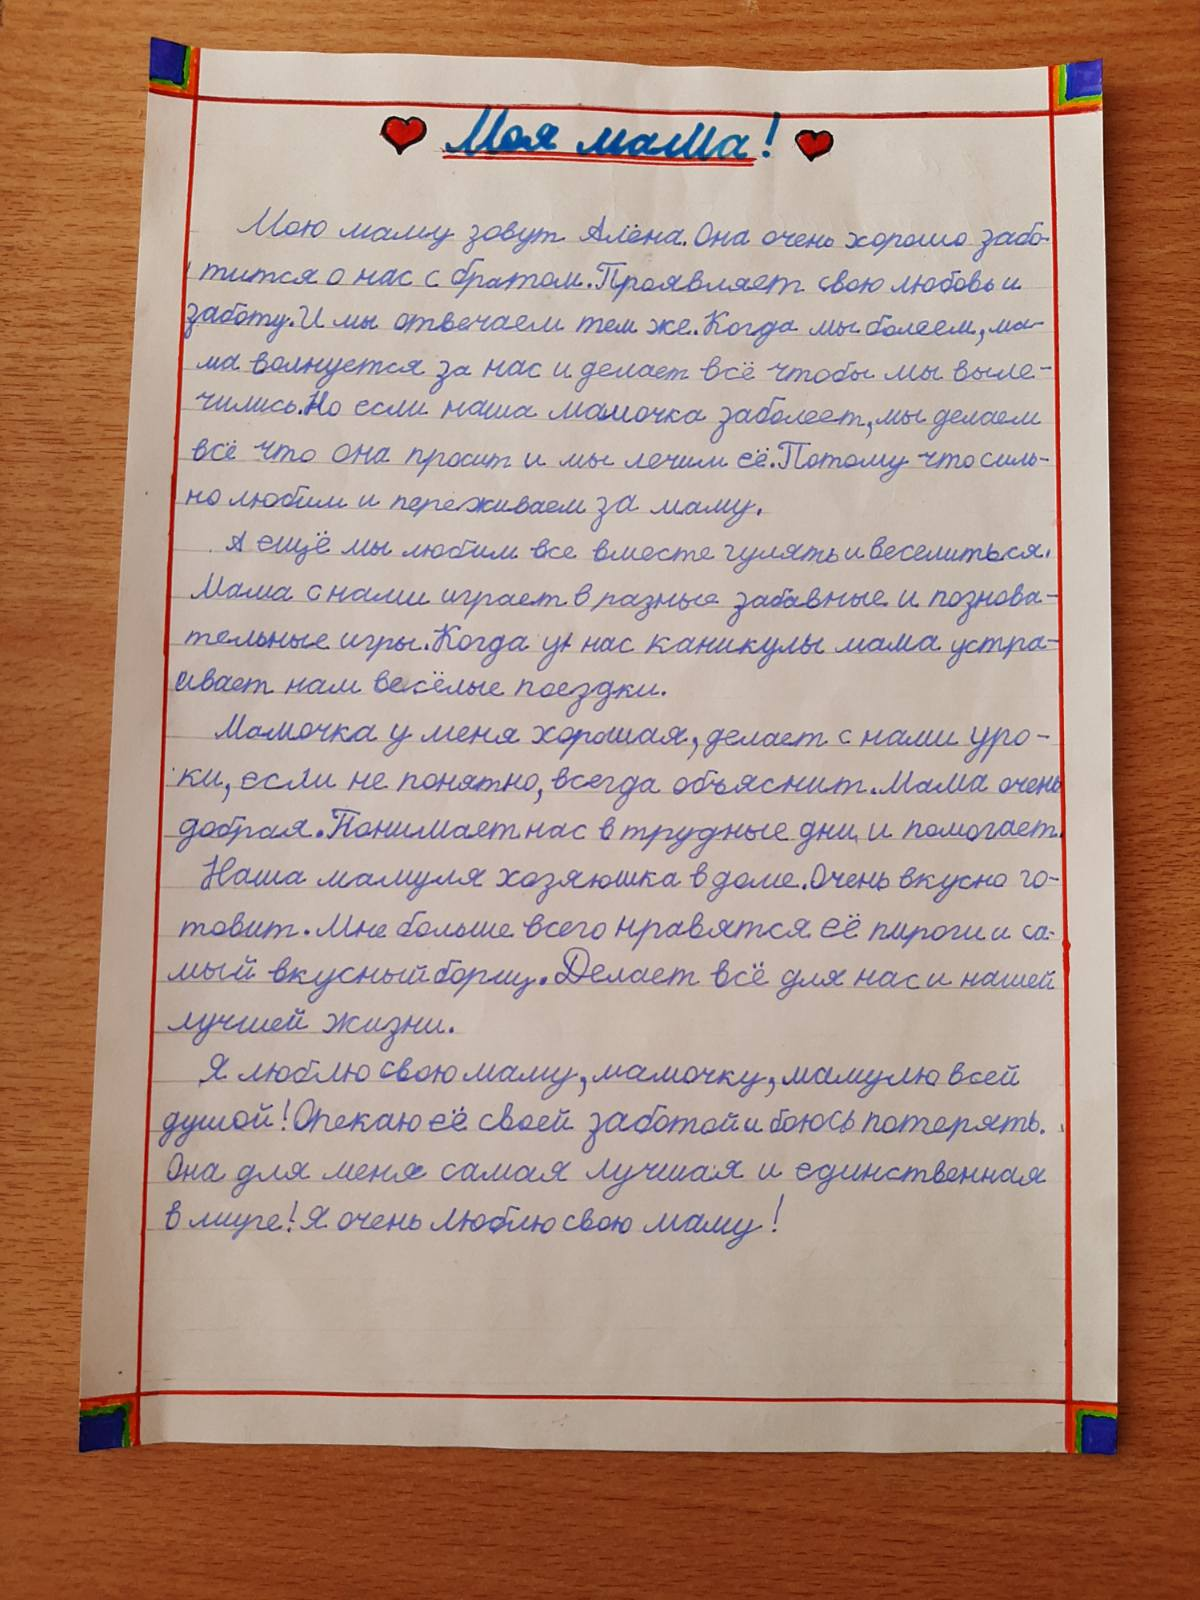 Моя мама!
Мою маму зовут Алёна. Она очень хорошо забо-
тится о нас с братом. Проявляет свою любовь и
заботу. И мы отвечаем тем же. Когда мы болеем, ма-
ма волнуется за нас и делает всё чтобы мы выле-
чились. Но если наша мамочка заболеет, мы делаем
всё что она просит и мы лечим её. Потому что силь-
но любим и переживаем за маму.
А ещё мы любим все вместе гулять и веселиться.
Мама с нами играет в разные забавные и познова-
тельные игры. Когда у нас каникулы мама устра-
ивает нам весёлые поездки.
Мамочка у меня хорошая, делает с нами уро-
ки, если не понятно, всегда объяснит. Мама очень
добрая. Понимает нас в трудные дни и помогает.
Наша мамуля хозяюшка в доме. Очень вкусно го-
товит. Мне больше всего нравятся её пироги и са-
мый вкусный борщ. Делает всё для нас и нашей
лучшей жизни.
Я люблю свою маму, мамочку, мамулю всей
душой! Опекаю её своей заботой и боюсь потерять.
Она для меня самая лучшая и единственная
в мире! Я очень люблю свою маму!